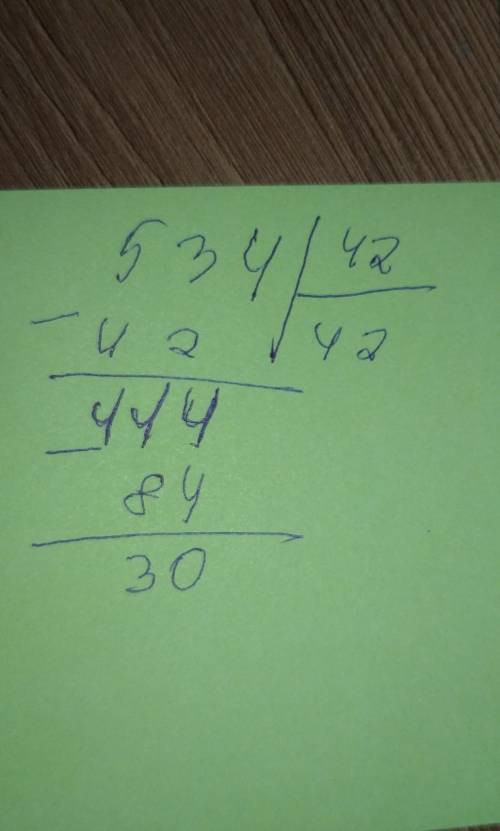 534 42
- 42 42
- 444
84
30